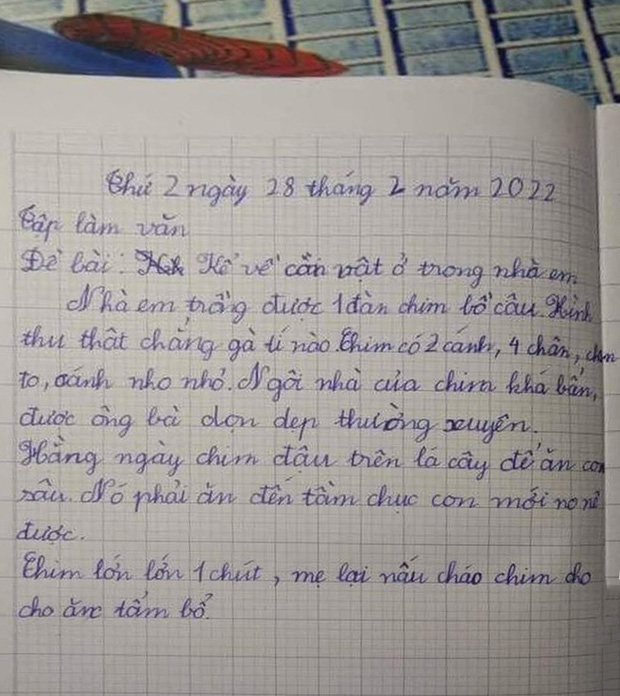 Thứ 2 ngày 28 tháng 2 năm 2022
Tập làm văn
Đề bài: Kể về cần vật ở trong nhà em
Nhà em trồng được 1 đàn chim bồ câu. Hình
thu thât chẳng gà tí nào. Chim có 2 cánh, 4 chân, chân
to, cánh nho nhỏ. Ngôi nhà của chim khá bẩn,
được ông bà dọn dẹp thường xuyên.
Hằng ngày chim đậu trên lá cây để ăn con
sâu. Nó phải ăn đến tầm chục con mới no nê
được.
Chim lớn lớn 1 chút, mẹ lại nấu cháo chim cho
cho ăn tẩm bổ.